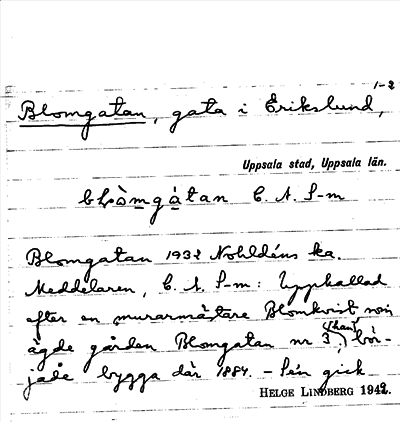 1-2
Blomgatan, gata i Erikslund,
Uppsala stad, Uppsala län.
C. A. S-m
Blomgatan 1932 Nohldéns ka.
Meddelaren, C. A. S-m: Uppkallad
efter en murarmästare Blomkvist som
ägde gården Blomgatan nr 3, (han) bör-
jade bygga där 1884. – Sén gick
HELGE LINDBERG 1942.